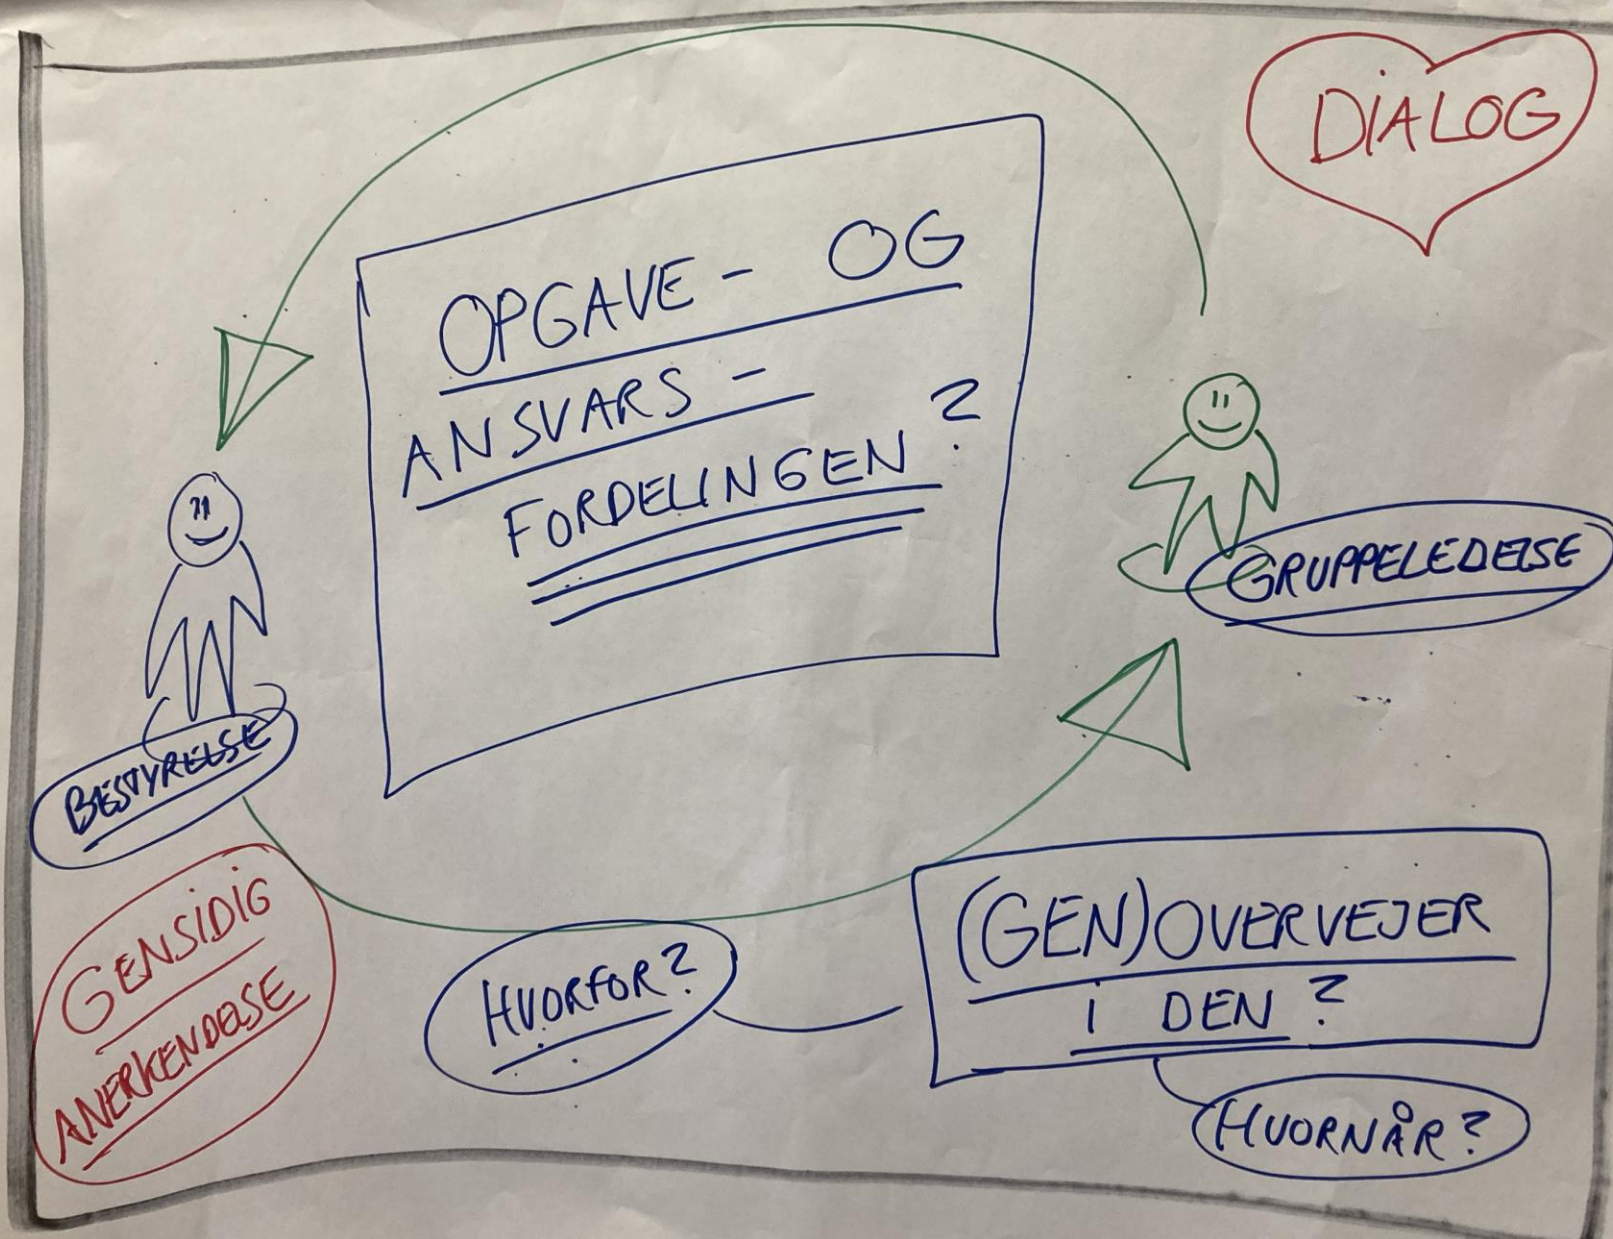 DIALOG
OPGAVE - OG
ANSVARS -
FORDELINGEN?
GRUPPELEDELSE
BESTYRELSE
GENSIDIG
ANERKENDELSE
HVORFOR?
(GEN)OVERVEJER
I DEN?
HVORNÅR?